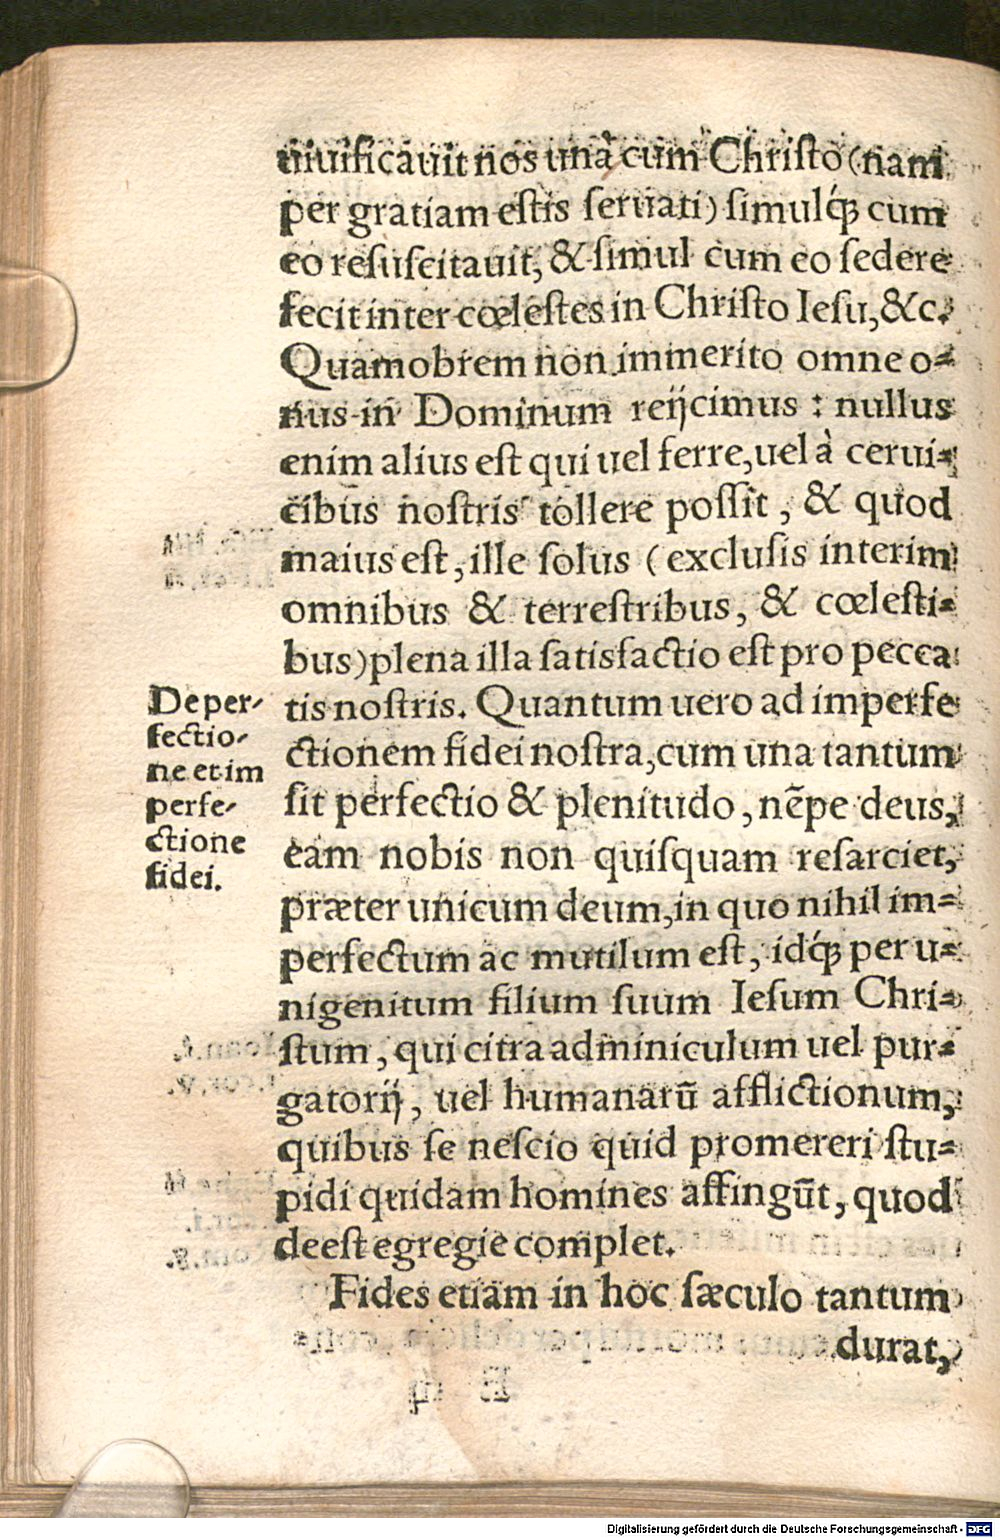 uiuificauit nos unà cum Chriſto (nam
per gratiam eſtis ſeruati) ſimulq́ꝫ cum
eo reſuſcitauit, & ſimul cum eo ſedere
fecit inter cœleſtes in Chriſto Ieſu, &c.
Quamobrem non immerito omne o-
nus in Dominum reijcimus: nullus
enim alius eſt qui uel ferre, uel à cerui-
cibus noſtris tollere poſsit, & quod
maius eſt, ille ſolus (excluſis interim
omnibus & terreſtribus, & cœleſti-
bus) plena illa ſatisfactio eſt pro pecca
tis noſtris. Quantum uero ad imperfe
ctionem fidei noſtra, cum una tantum
ſit perfectio & plenitudo, nẽpe deus,
eam nobis non quiſquam reſarciet,
præter unicum deum, in quo nihil im-
perfectum ac mutilum eſt, idq́ꝫ per u-
nigenitum filium ſuum Ieſum Chri-
ſtum, qui citra adminiculum uel pur-
gatorij, uel humanarũ afflictionum,
quibus ſe neſcio quid promereri ſtu-
pidi quidam homines affingũt, quod
deeſt egregie complet.
Fides etiam in hoc ſæculo tantum
durat,
De per-
fectio-
ne et im
perfe-
ctione
fidei.
Digitalisierung gefördert durch die Deutsche Forschungsgemeinschaft - DFG